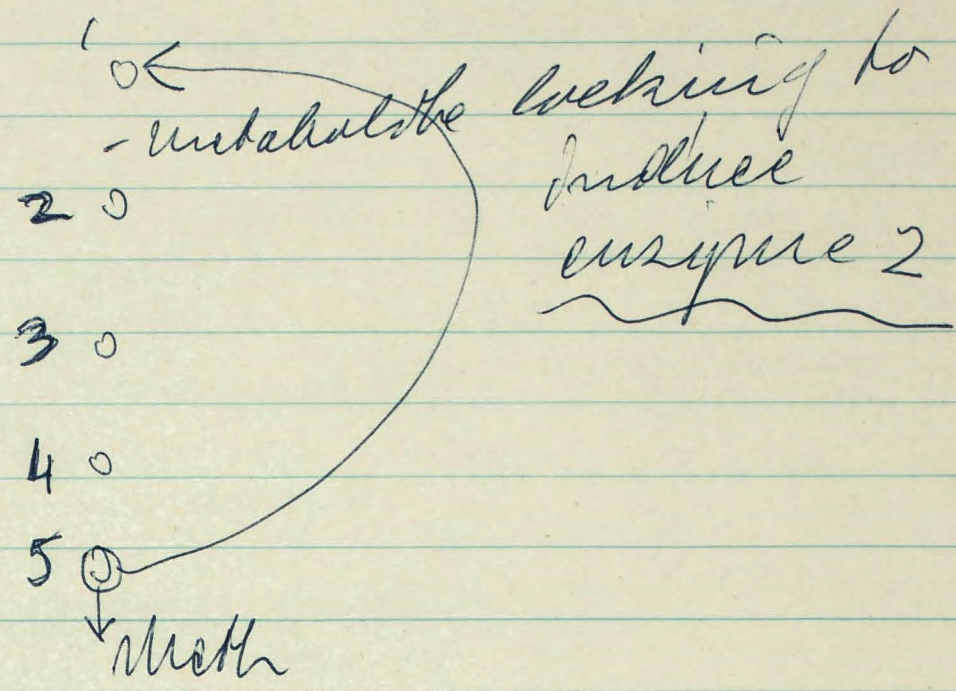 1
- metabolite lacking to
2 induce
enzyme 2
3
4
5
Meth